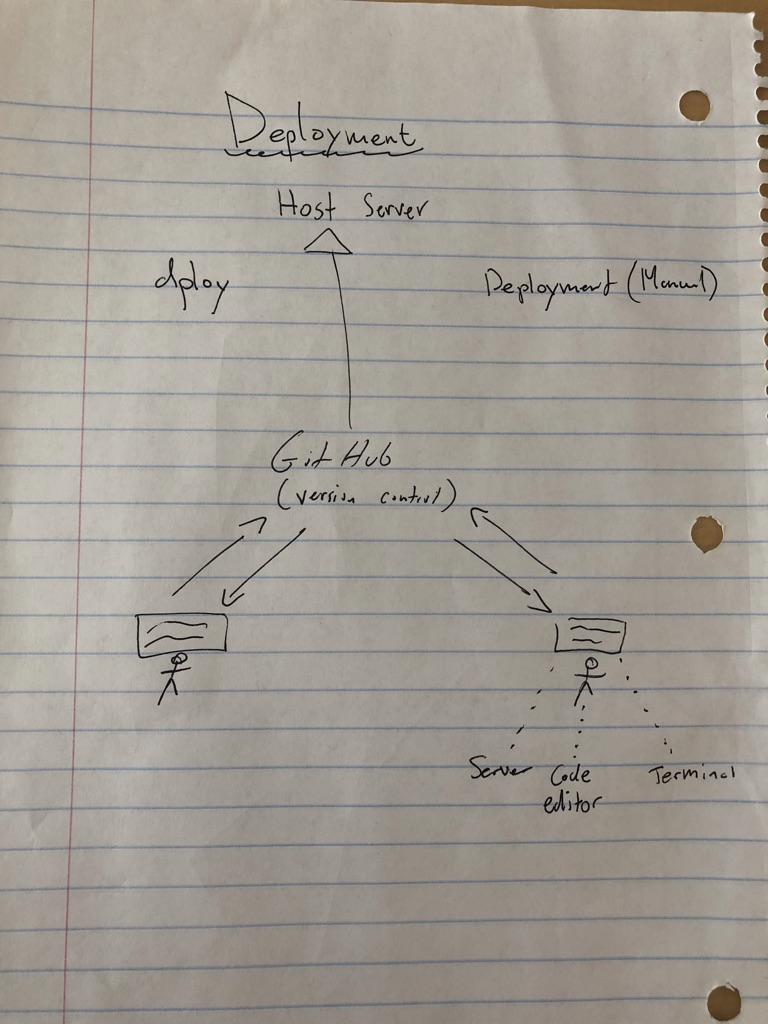 Deployment
Host Server
dploy
Deployment (Manual)
GitHub
(version control)
Server
Code
editor
Terminal